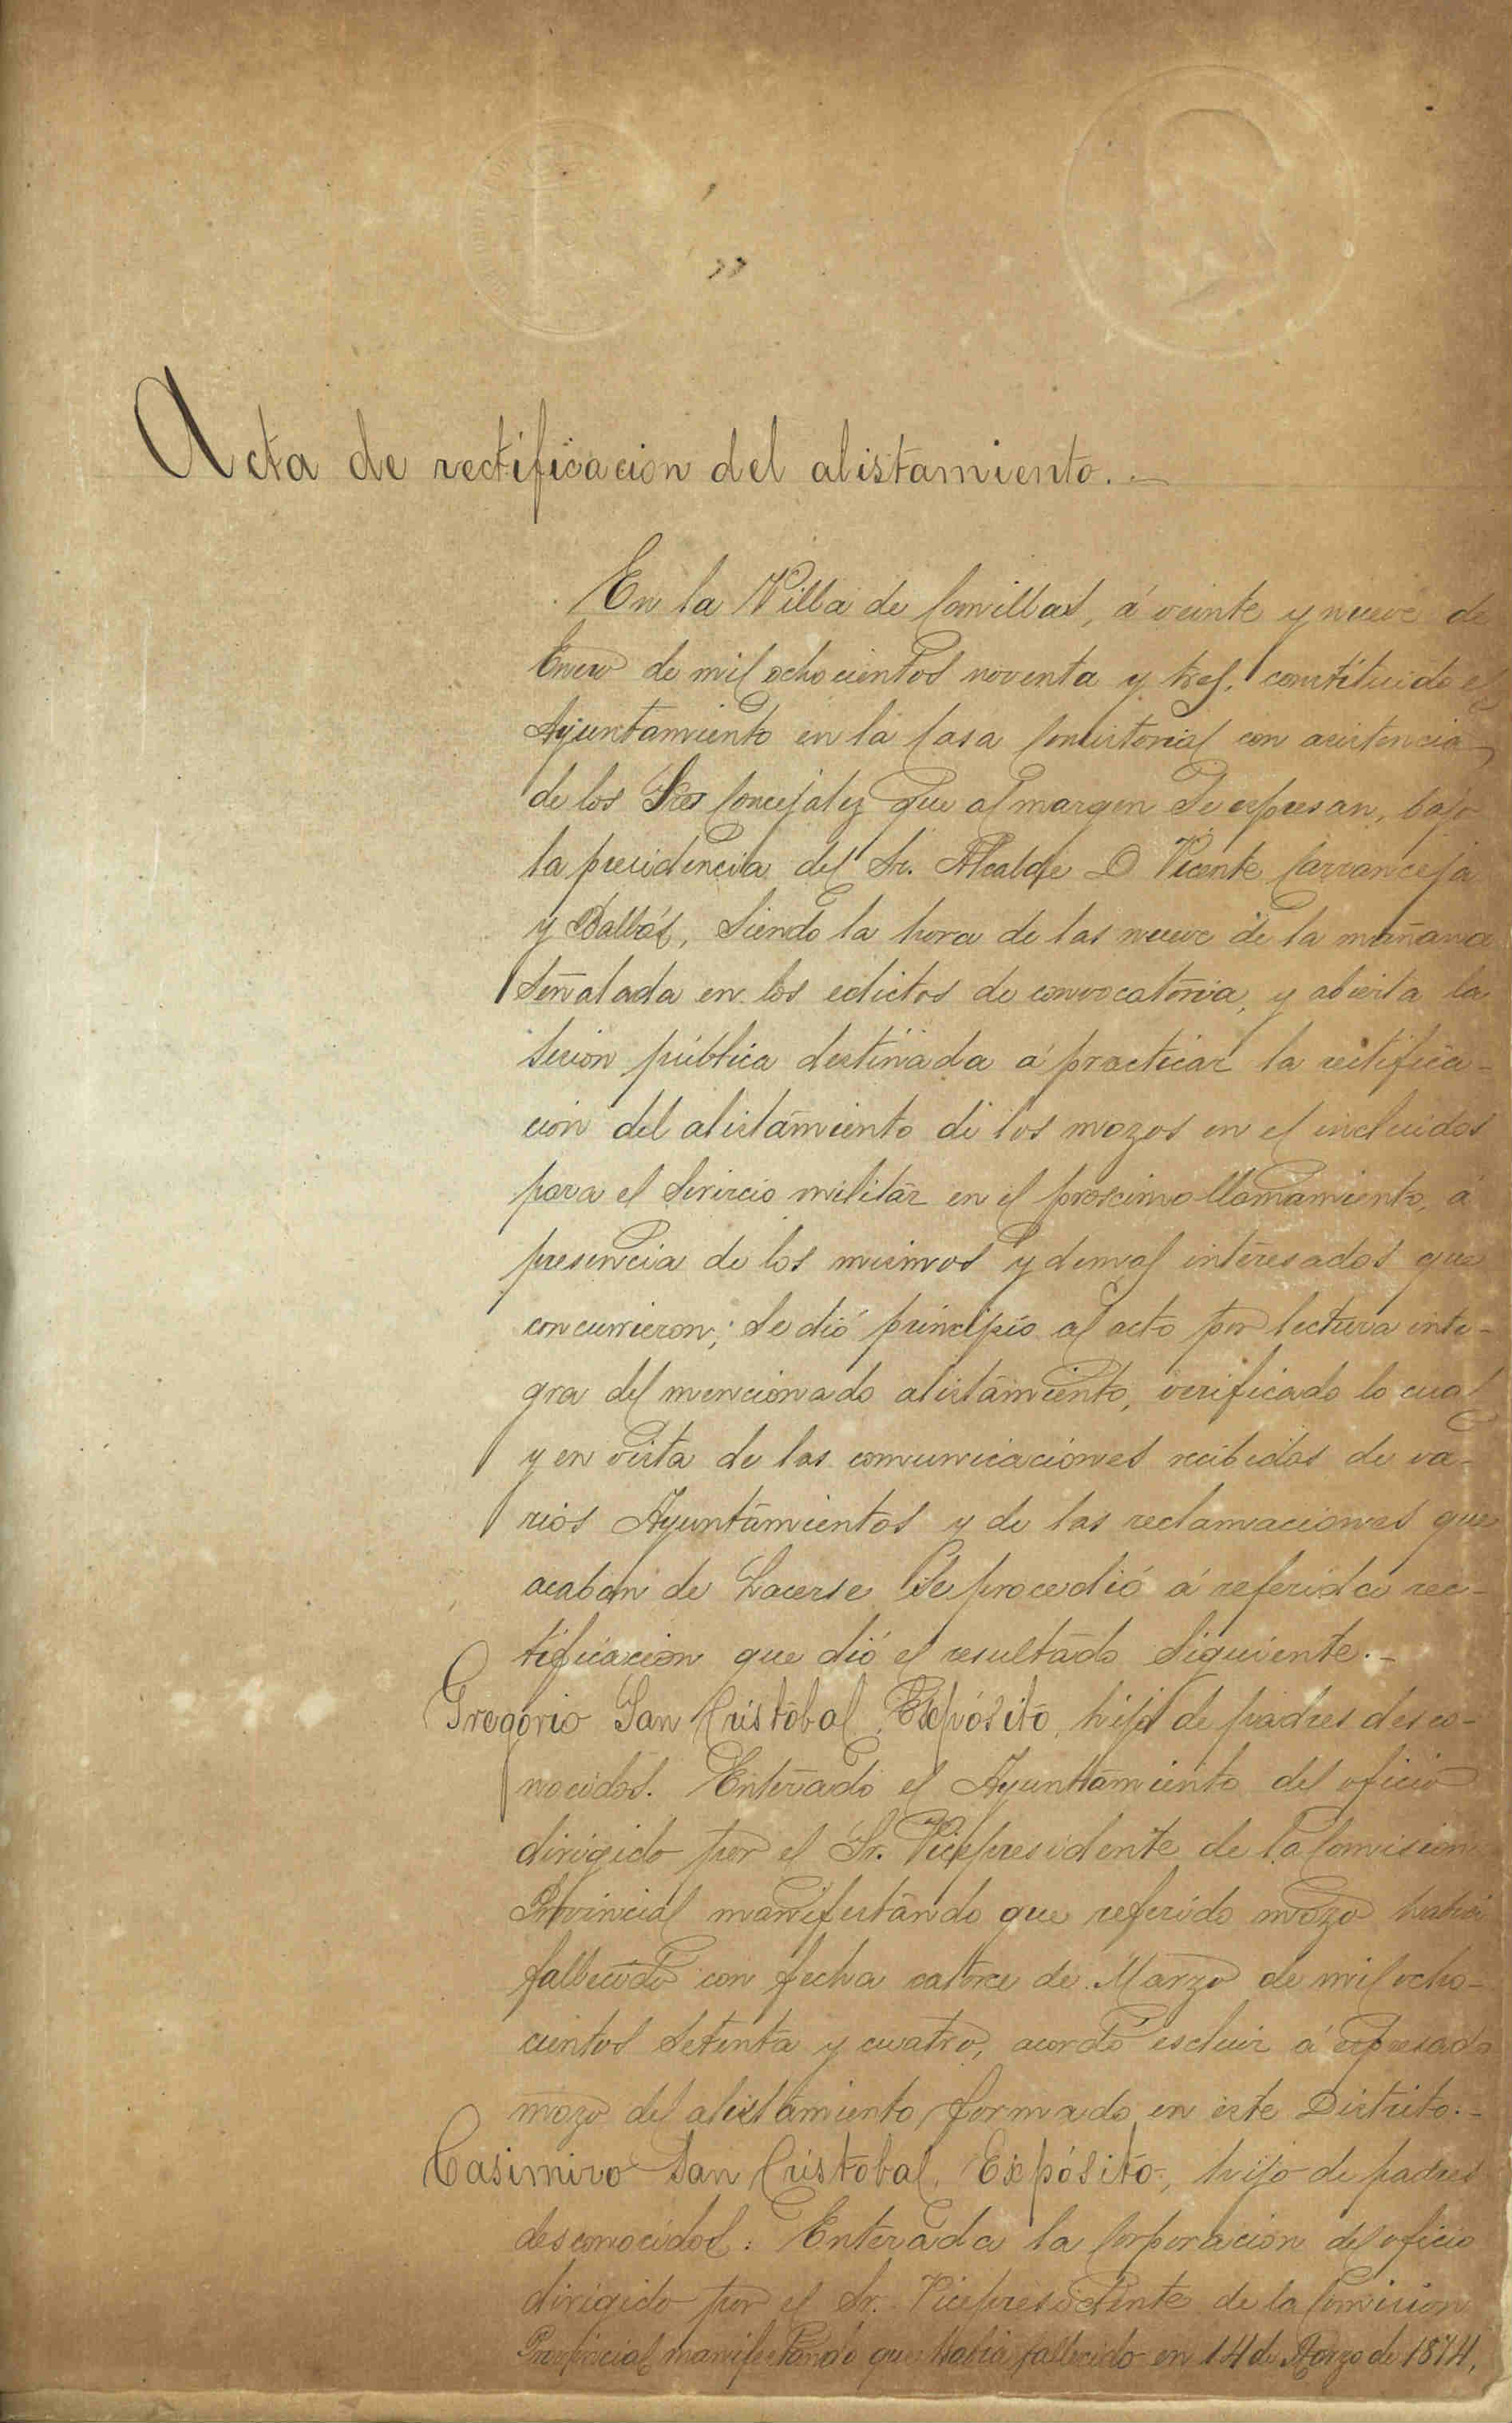 Acta de rectificacion del alistamiento.-
En la Villa de Comillas, á veinte y nueve de
Enero de mil ochocientos noventa y tres, constituido el
Ayuntamiento en la Casa Consistorial con asistencia
de los Sres Concejales que al margen se espresan, bajo
la presidencia del Sr. Alcalde D. Vicente Carranceja
y Balbás, siendo la hora de las nueve de la mañana
señalada en los edictos de convocatoria, y abierta la
sesion pública destinada á practicar la rectifica-
cion del alistamiento de los mozos en el incluidos
para el servicio militar en el procsimo llamamiento, á
presencia de los mismos y demas interesados que
concurrieron; se dió principio al acto por lectura inte-
gra del mencionado alistamiento, verificado lo cual
y en vista de las comunicaciones recibidas de va-
rios Ayuntamientos y de las reclamaciones que
acaban de hacerse se procedió á referida rec-
tificacion que dió el resultado siguiente.-
Gregorio San Cristobal, Expósito, hijo de padres desco-
nocidos. Enterado el Ayuntamiento del oficio
dirigido por el Sr. Vicepresidente de la Comision
Provincial manifestando que referido mozo habia
fallecido con fecha catorce de Marzo de mil ocho-
cientos setenta y cuatro, acordó escluir á espresado
mozo del alistamiento formado en este Distrito.-
Casimiro San Cristobal, Expósito, hijo de padres
desconocidos: Enterada la Corporacion del oficio
dirigido por el Sr. Vicepresidente de la Comision
Provincial manifestando que habia fallecido en 14 de Marzo de 1874,